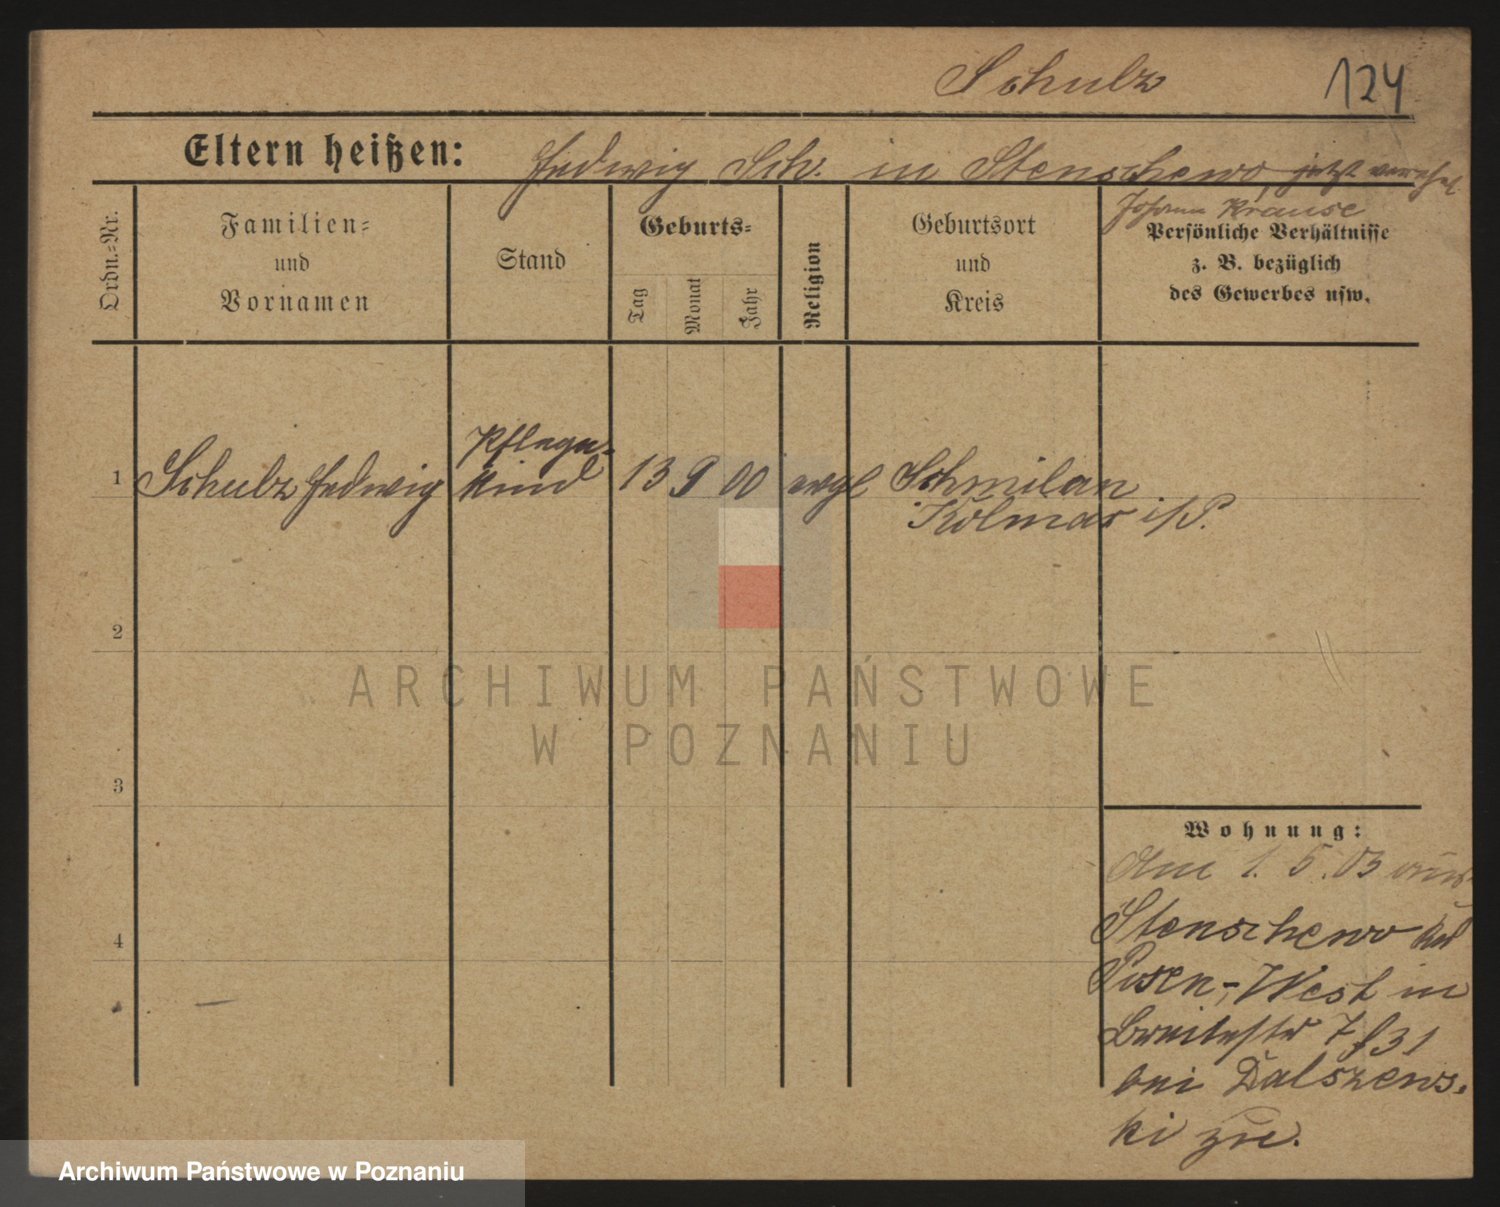 Schulz 124
Eltern heißen: Hedwig Sch. in Stenschewo, jetzt verehel
Johann Krause
Ordn.=Nr.
Familien=
und
Vornamen
Stand
Geburts=
Tag
Monat
Jahr
Religion
Geburtsort
und
Kreis
Persönliche Verhältnisse
z. B. bezüglich
des Gewerbes usw.
Pflege-
1 Schulz Hedwig kind 13 9 00 evgl Schmilau
Kolmar i/P.
2
3
4
Wohnung:
Am 1. 5. 03 aus
Stenschewo
Posen-West in
Breitestr 7
bei Dalszews-
ki zu.
ARCHIWUM PAŃSTWOWE
W POZNANIU
Archiwum Państwowe w Poznaniu